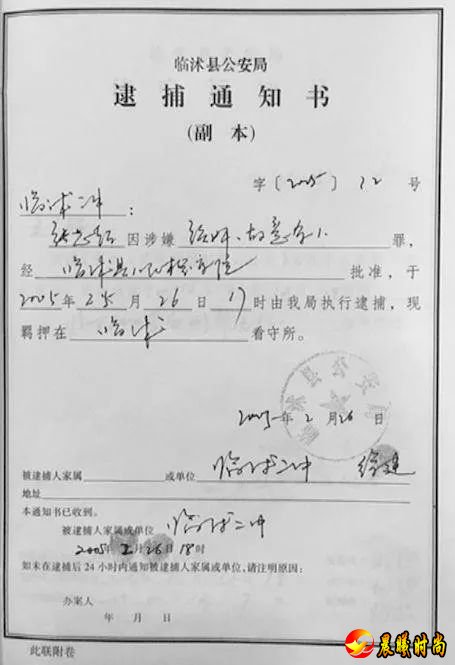 临沭县公安局
逮捕通知书
(副本)
字〔2005〕12号
临沭二中：
因涉嫌 故意杀人罪，
经临沭县人民检察院批准，于
2005年2月26日17时由我局执行逮捕，现
羁押在临沭看守所。
临沭县公安局
2005年2月26日
被逮捕人家属 或单位 临沭二中
地址
本通知书已收到。
被逮捕人家属或单位 临沭二中
2005年2月26日18时
如未在逮捕后24小时内通知被逮捕人家属或单位,请注明原因:
办案人
年 月 日
此联附卷
晨曦时尚